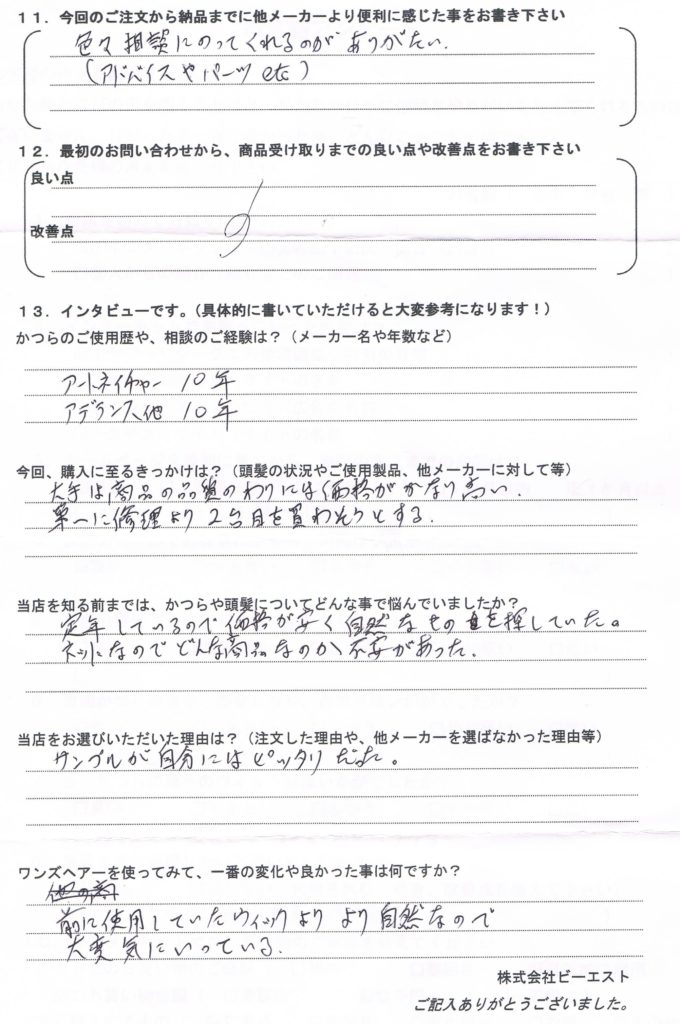 １１．今回のご注文から納品までに他メーカーより便利に感じた事をお書き下さい
色々相談にのってくれるのがありがたい.
(アドバイスやパーツ etc)
１２．最初のお問い合わせから、商品受け取りまでの良い点や改善点をお書き下さい
良い点
改善点
１３．インタビューです。（具体的に書いていただけると大変参考になります！）
かつらのご使用歴や、相談のご経験は？（メーカー名や年数など）
アートネイチャー 10年
アデランス他 10年
今回、購入に至るきっかけは？（頭髪の状況やご使用製品、他メーカーに対して等）
大手は商品の品質のわりには価格がかなり高い.
第一に修理より 2台目を買わそうとする.
当店を知る前までは、かつらや頭髪についてどんな事で悩んでいましたか？
定年しているので価格が安く自然なものを探していた。
ネットになのでどんな商品なのか不安があった.
当店をお選びいただいた理由は？（注文した理由や、他メーカーを選ばなかった理由等）
サンプルが自分にはピッタリだった。
ワンズヘアーを使ってみて、一番の変化や良かった事は何ですか？
前に使用していたウィックより より自然なので
大変気にいっている.
株式会社ビーエスト
ご記入ありがとうございました。